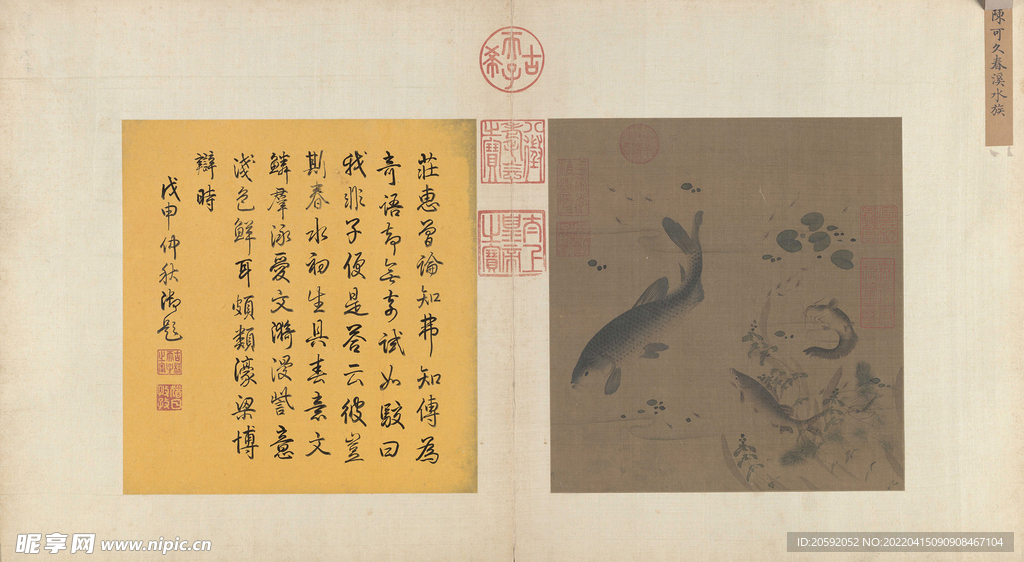 陳可久春溪水族
古希天子
八徵耄念之寶
太上皇帝之寶
莊惠曾論知弗知傳為
奇語却無奇試如駁曰
我非子便是答云彼豈
斯春水初生具春意文
鱗羣泳愛文漪漫訾意
淺色鮮耳頗類濠梁博
辯時
戊申仲秋御題
昵享网 www.nipic.cn
ID:20592052 NO:20220415090908467104